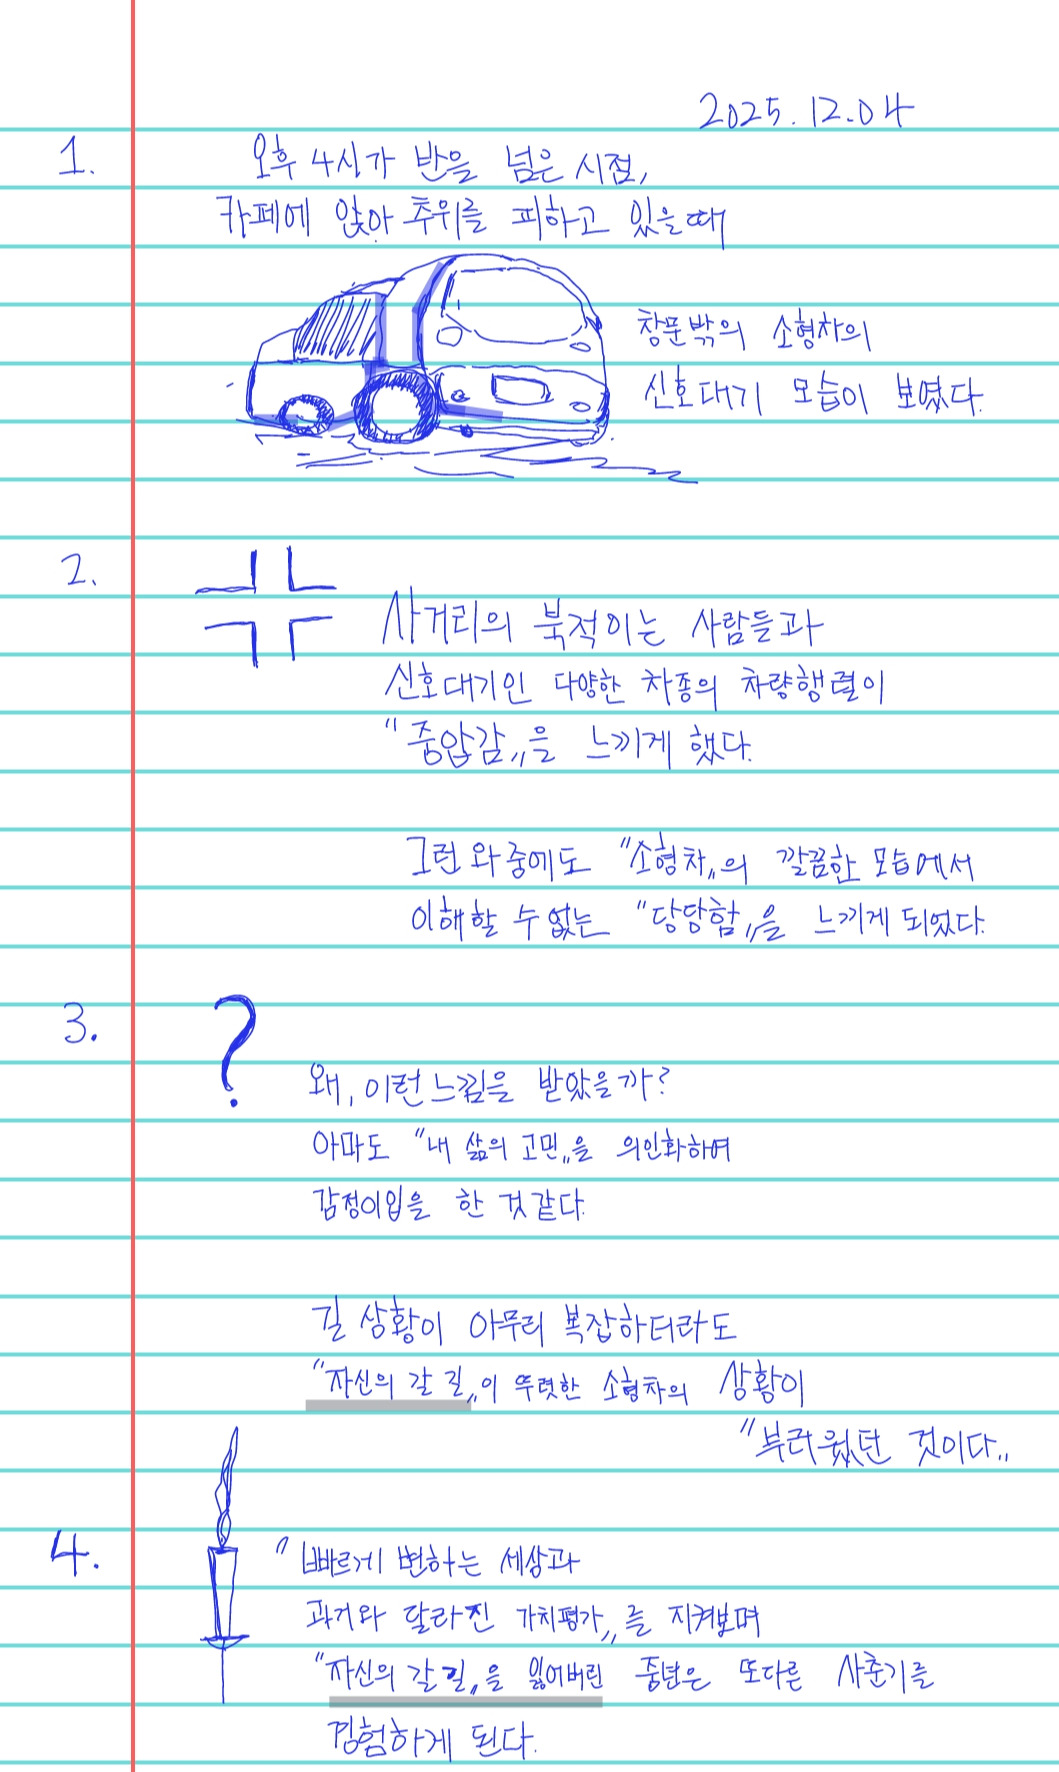 2025.12.04
1.
오후 4시가 반을 넘은 시점,
카페에 앉아 추위를 피하고 있을때
창문밖의 소형차의
신호대기 모습이 보였다.
2.
사거리의 북적이는 사람들과
신호대기인 다양한 차종의 차량행렬이
"중압감„을 느끼게 했다.
그런 와중에도 "소형차„의 깔끔한 모습에서
이해할 수 없는 "당당함„을 느끼게 되었다.
3.
?
왜, 이런 느낌을 받았을까?
아마도 "내 삶의 고민„을 의인화하여
감정이입을 한 것 같다.
길 상황이 아무리 복잡하더라도
"자신의 갈 길„이 뚜렷한 소형차의 상황이
"부러웠던 것이다„
4.
"빠르게 변하는 세상과
과거와 달라진 가치평가„를 지켜보며
"자신의 갈 길„을 잃어버린 중년은 또다른 사춘기를
경험하게 된다.